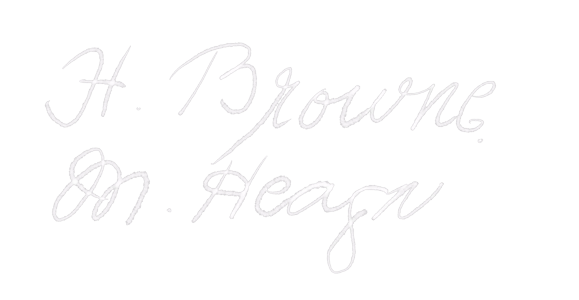 H. Browne.
M. Heagr